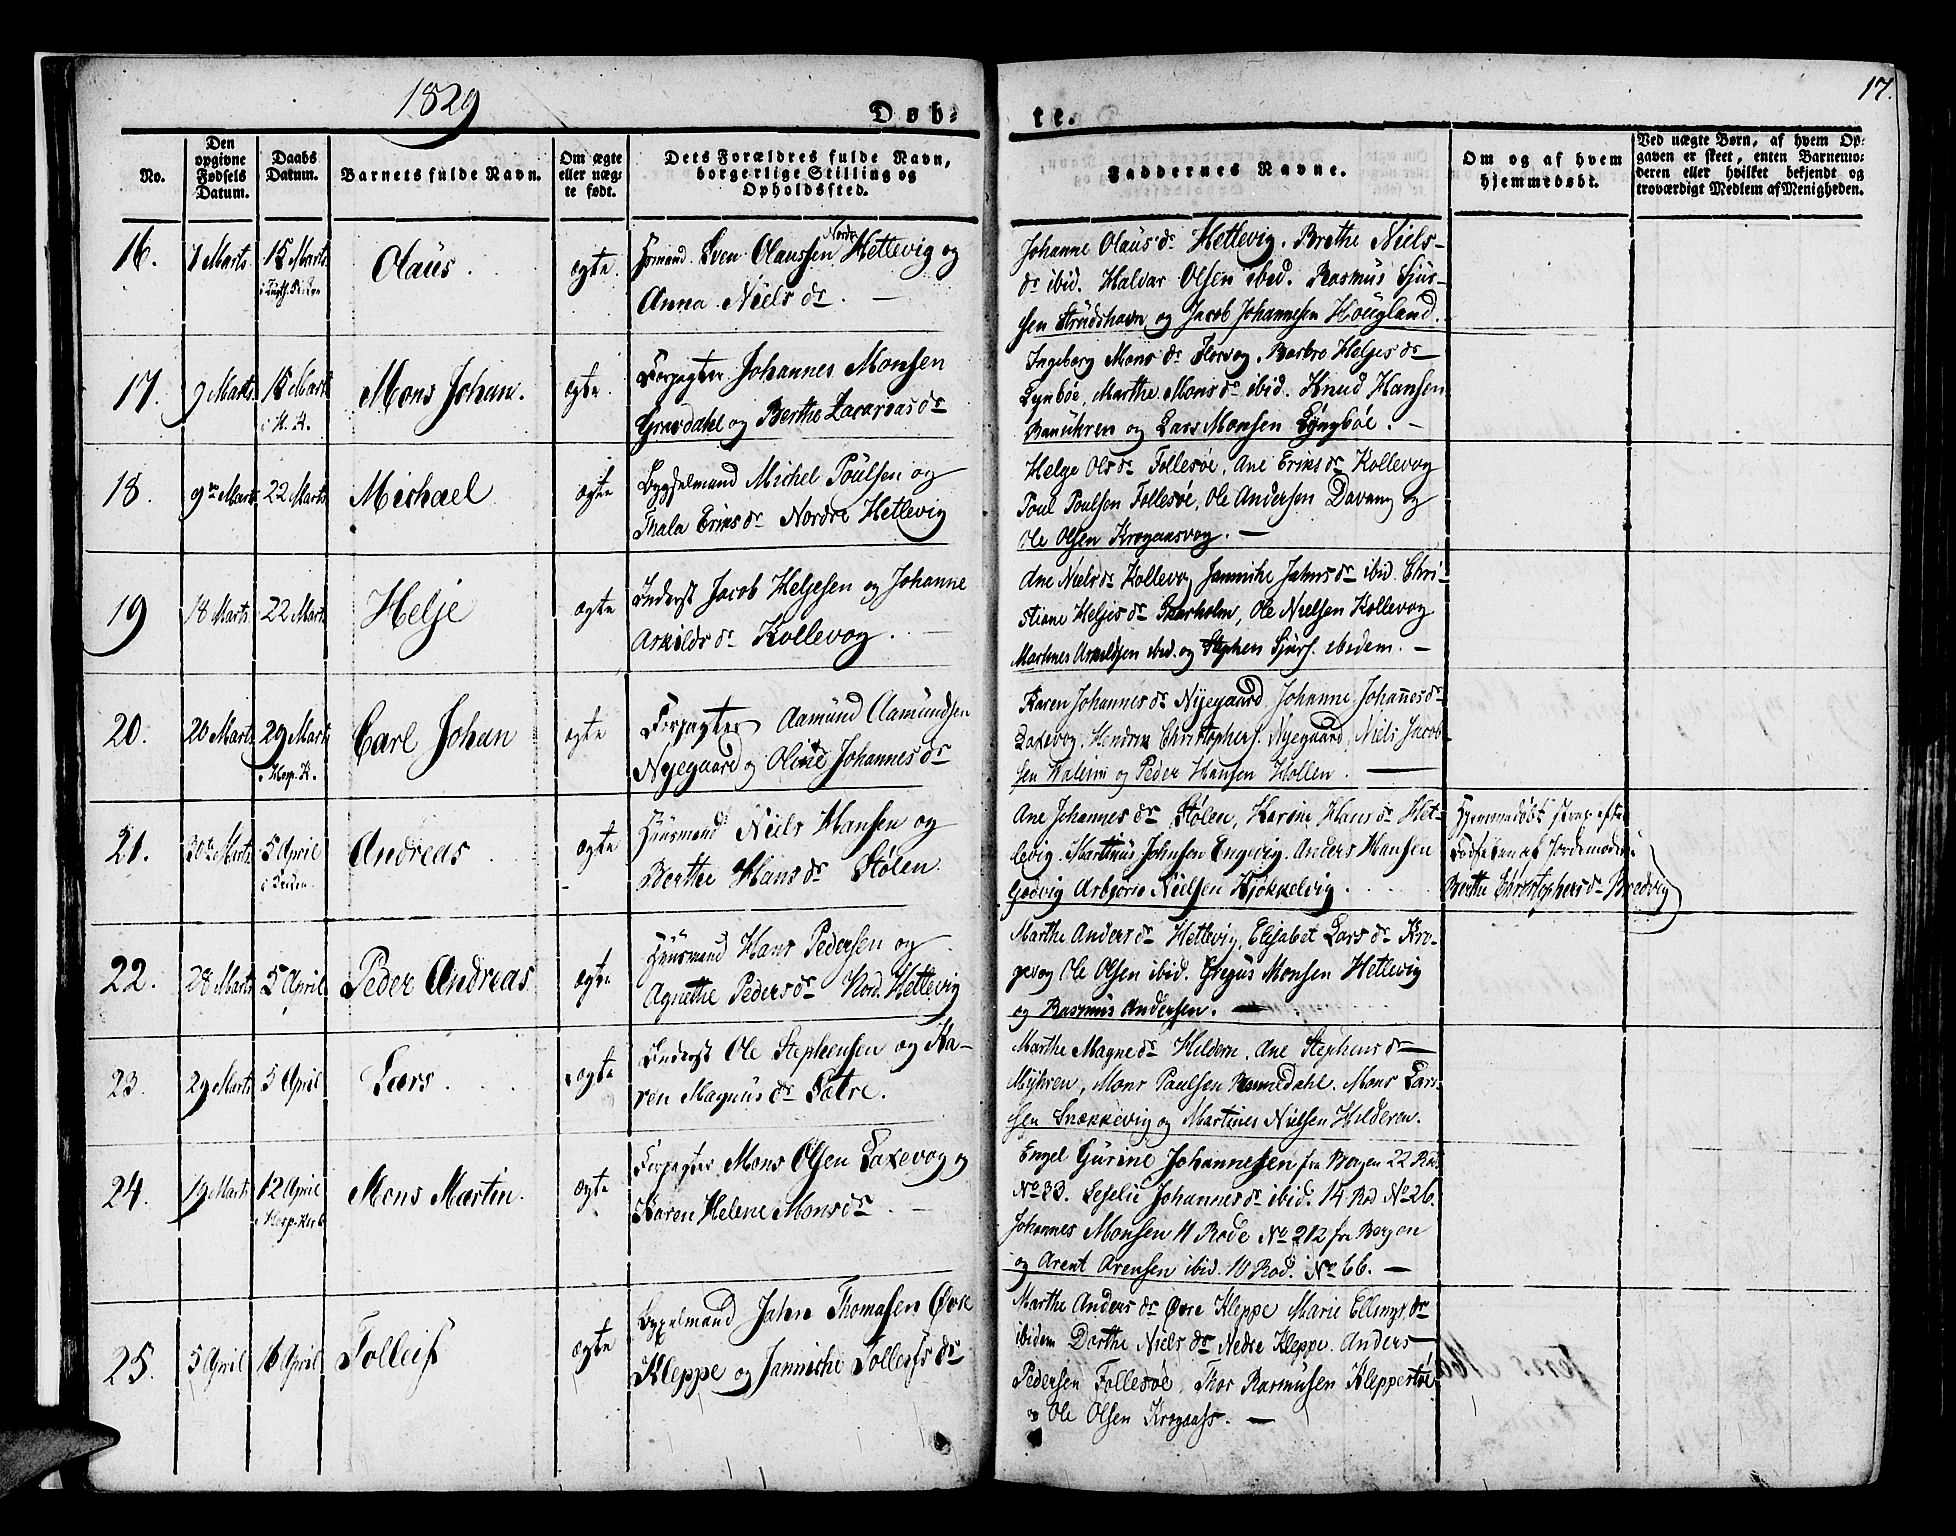 1829
Døb-
te.
17.
No.
Den opgivne Fødsels Datum.
Daabs Datum.
Barnets fulde Navn.
Om ægte eller uægte født.
Dets Forældres fulde Navn, borgerlige Stilling og Opholdssted.
Faddernes Navne.
Om og af hvem hjemmedøbt.
Ved uægte Børn, af hvem Opgaven er skeet, enten Barnemoderen eller hvilket bekjendt og troværdigt Medlem af Menigheden.
16. 7 Marts 15 Marts
Olaus
ægte
Sven Olaussen Nordre Hettevig og
Anna Niels dr. —
Johanne Olaus dr Hettevig. Brethe Niels-
dr ibid. Haldar Olsen ibid. Rasmus Sjur-
sen Strudshavn og Jacob Johannesen Hougland.
17. 9 Marts 15 Marts
i H. K.
Mons Johan.
ægte
Forpagter Johannes Monsen
Gravdahl og Berthe Zacarias dr
Ingeborg Mons dr Florvog. Barbro Helges dr
Lynbøe, Marthe Mons dr ibid. Knud Hansen
og Lars Monsen Lyngbøe. —
18. 9de Marts 22 Marts
Michael
ægte
Bygselmand Michel Poulsen og
Thala Eriks dr Nordre Hetlevig
Helge Ols dr Follesøe, Ane Eriks dr Kollevog
Poul Poulsen Follesøe, Ole Andersen Davang og
Ole Olsen Krogaasvog. —
19 18 Marts 22 Marts
Helje
ægte
Inderst Jacob Heljesen og Johanne
Arkilds dr Kollevog. —
Ane Niels dr Kollevog Jannike Jahns dr ibid. Chri-
stiane Heljes dr, Ole Nielsen Kollevog
Martines Arkeldsen ibid. og Stephen Sjurs. ibedem. —
20. 20 Marts 29 Marts
i Hosp. K.
Carl Johan
ægte
Forpagter Aamund Aamundsen
Nyegaard og Oline Johannes dr
Karen Johannes dr Nyegaard, Johanne Johannes dr
Laxevog, Hendrik Christophers. Nyegaard, Niels Jacob-
sen og Peder Hansen Hollen. —
21. 30te Marts 5 April
Andreas
ægte
Huusmand Niels Hansen og
Berthe Hans dr Stølen.
Ane Johannes dr Stølen, Karine Hans dr Het-
levig. Martinus Johnsen Engevig. Anders Hansen
Godvig Asbjørn Nielsen Hjøkkelvig.
Hjemmedøbt strax efter
Fødselen af Jordemoder
Berthe Christophers dr Bredvig
22. 28 Marts 5 April
Peder Andreas.
ægte
Huusmand Hans Pedersen og
Agnethe Peders dr Nord. Hettevig
Marthe Anders dr Hettevig, Elisabet Lars dr Kro-
gevog Ole Olsen ibid. Gregus Monsen Hetlevig
og Rasmus Andersen. —
23. 29 Marts 5 April
Lars
ægte
Inderst Ole Stephensen og Ka-
ren Magnus dr Sotre.
Marthe Magne dr Heldern, Ane Stephens dr
Myhren, Mons Paulsen Ramnedahl. Mons Lar-
sen Snækkevig og Martines Nielsen Hilderen.
24. 19 Marts 12 April
i Hosp. Kirk
Mons Martin.
ægte
Forpagter Mons Olsen Laxevog og
Karen Helene Mons dr —
Engel Gurine Johannesen fra Bergen 22 Rod
No 33. Johannes dr ibid. 14 Rod No 26.
Johannes Monsen 11 Rode No 212 fra Bergen
og Arent Arensen ibid. 10 Rod. No 66. —
25. 5 April 16 April
Tolleif
ægte
Bygselmand Jahn Thomasen Øvre
Kleppe og Jannicke Tolleifs dr
Marthe Anders dr Øvre Kleppe Marie Ellings dr
ibidem Dorthe Niels dr Nedre Kleppe. Anders
Pedersen Follesøe, Thor Rasmusen Kleppestøe
og Ole Olsen Krogaass. —